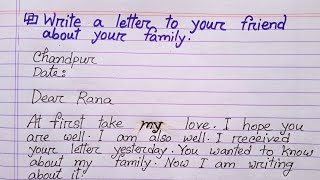 Write a letter to your friend
about your family.
Chandpur
Date:
Dear Rana
At first take my love. I hope you
are well. I am also well. I received
your letter yesterday. You wanted to know
about my family. Now I am writing
about it.